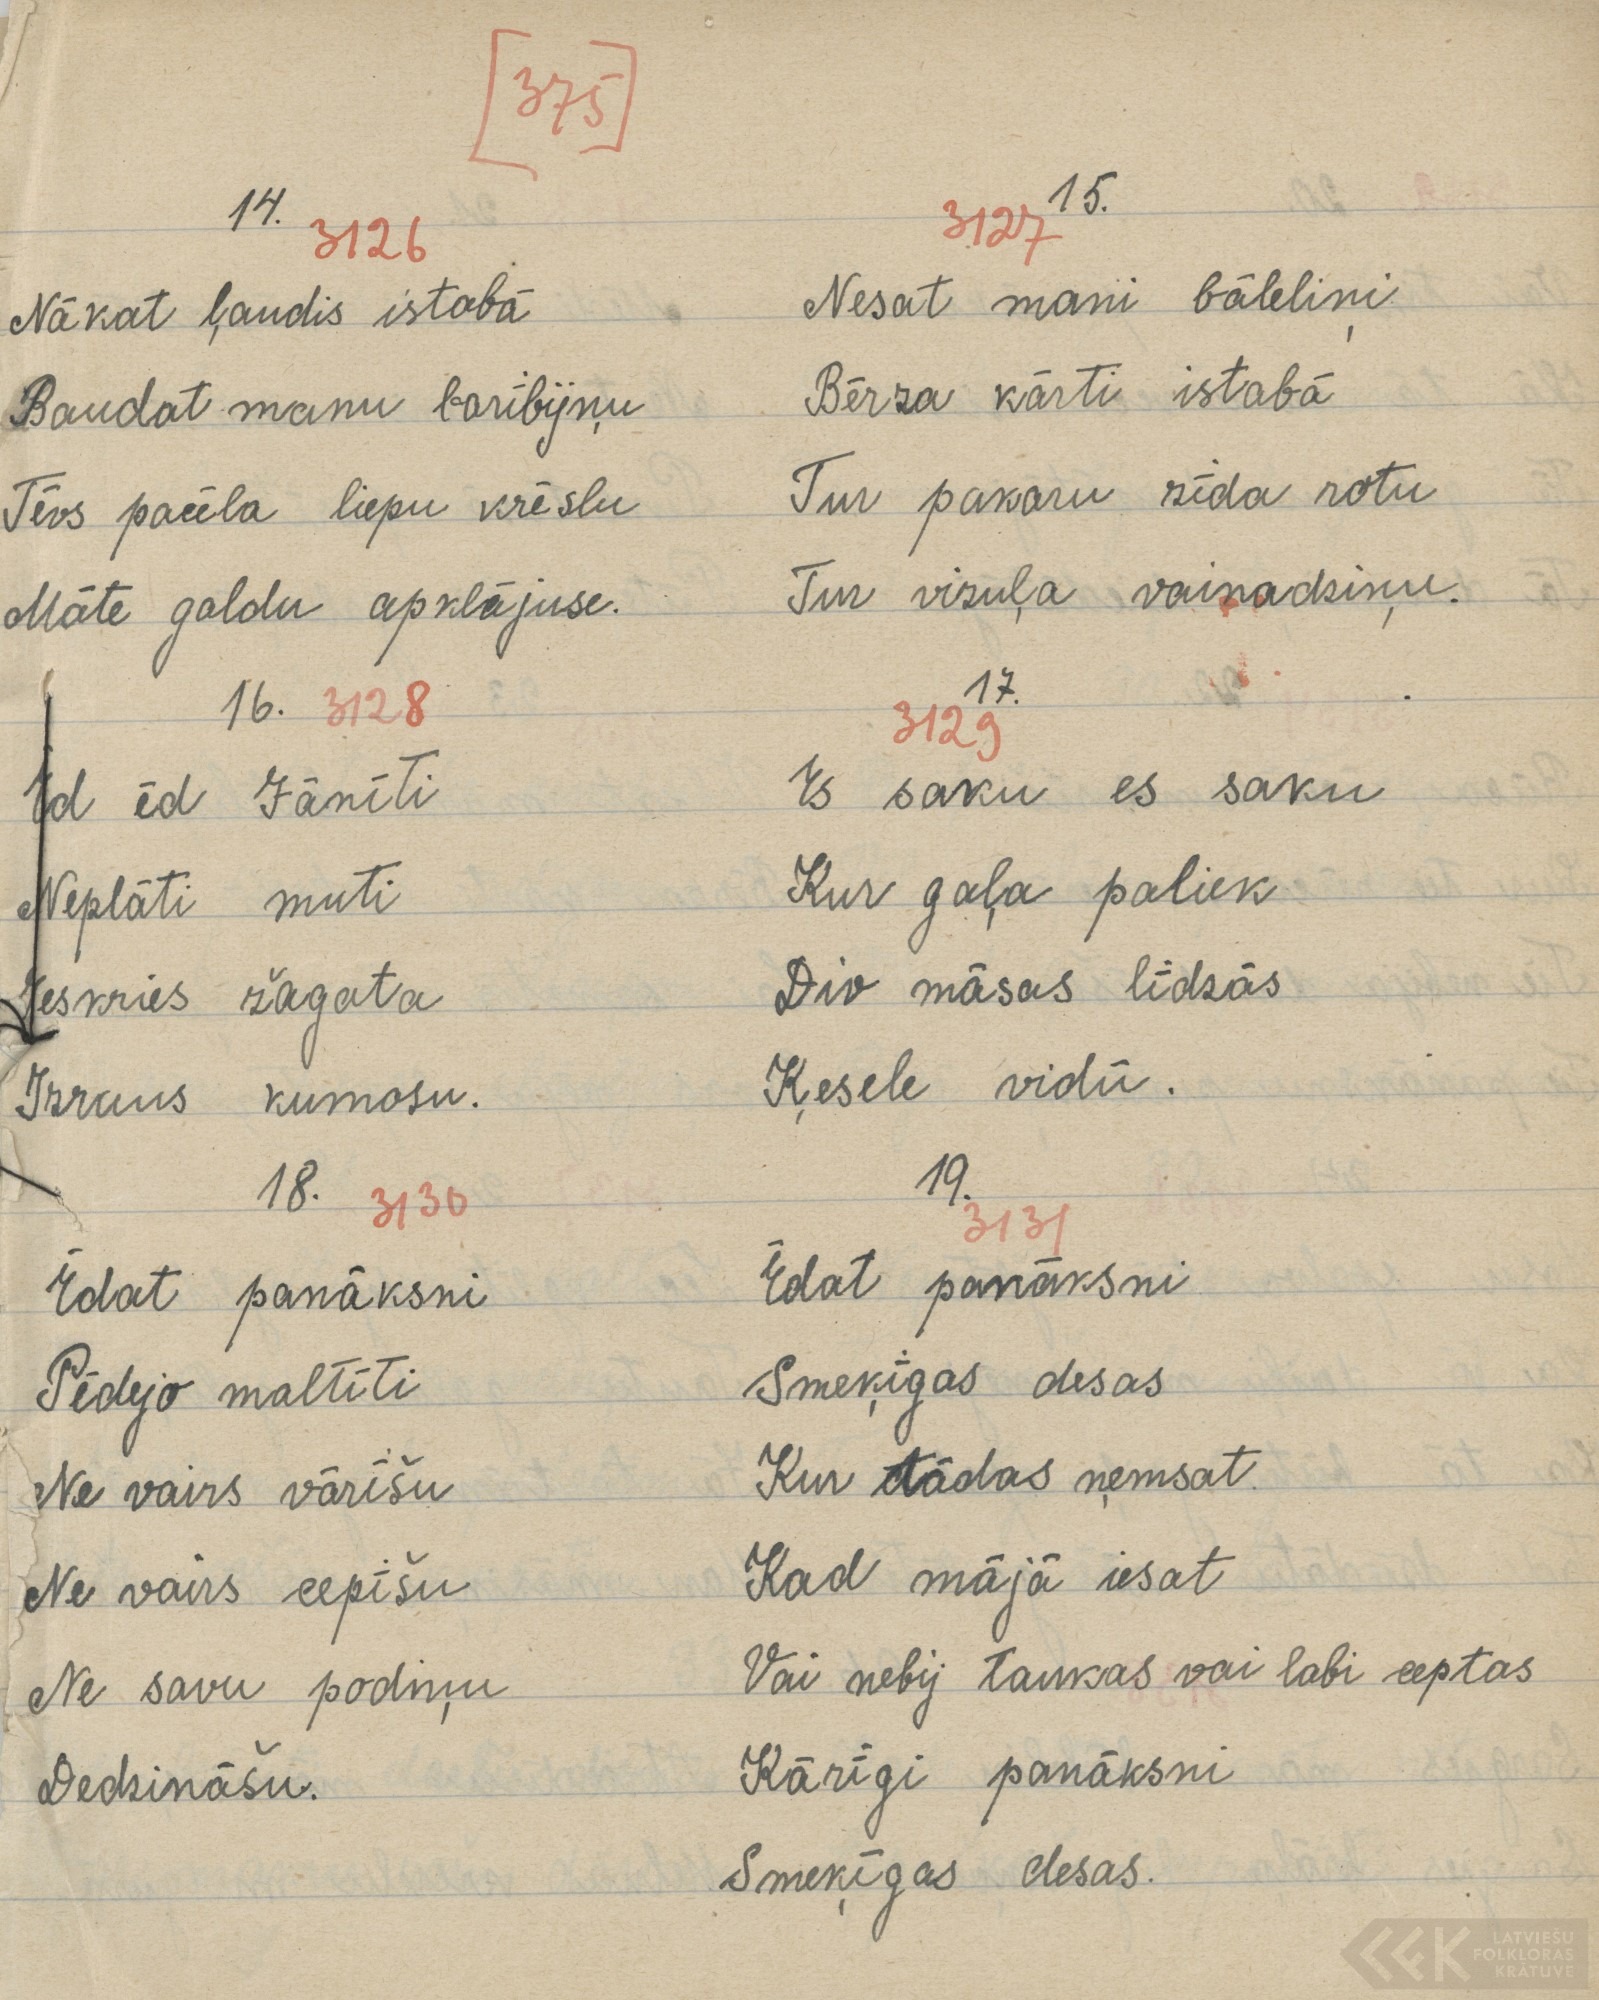 [375]
14.
3126
Nākat ļaudis istabā
Baudat manu baribijņu
Tēvs pacēla liepu krēslu
Māte galdu apklājuse.
15.
3127
Nesat mani bāleliņi
Bērza kārti istabā
Tur pakaru zīda rotu
Tur vizuļa vainadziņu.
16. 3128
Ēd ēd Jānīti
Neplāti muti
Ieskries žagata
Izraus kumosu.
17.
3129
Es saku es saku
Kur gaļa paliek
Div māsas līdzās
Ķesele vidū.
18. 3130
Ēdat panāksni
Pēdejo maltīti
Ne vairs vārīšu
Ne vairs cepīšu
Ne savu podiņu
Dedzināšu.
19.
3131
Ēdat panāksni
Smeķīgas desas
Kur tādas ņemsat
Kad mājā iesat
Vai nebij taukas vai labi ceptas
Kārīgi panāksni
Smeķīgas desas.
LATVIEŠU
FOLKLORAS
KRĀTUVE